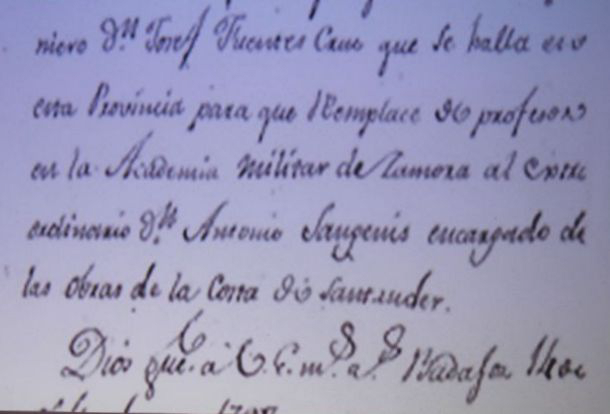 niero Dⁿ Josef Fuentes Cruz que se halla en
esta Provincia para que Remplace de profesor
en la Academia Militar de Zamora al Extra
ordinario Dⁿ Antonio Sangenis encargado de
las obras de la Costa de Santander.
Dios gue. a V. E. mˢ. aˢ. Badajoz 14 de